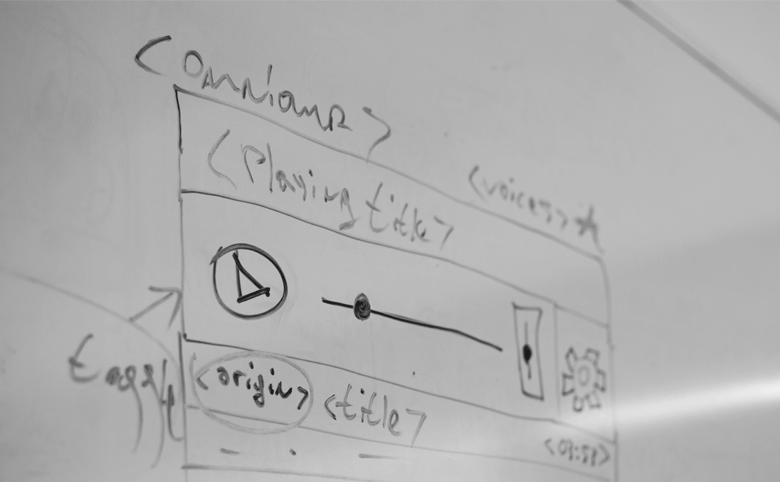 <omniamp>
<Playing title>
<voices>
toggle
<origin> <title>